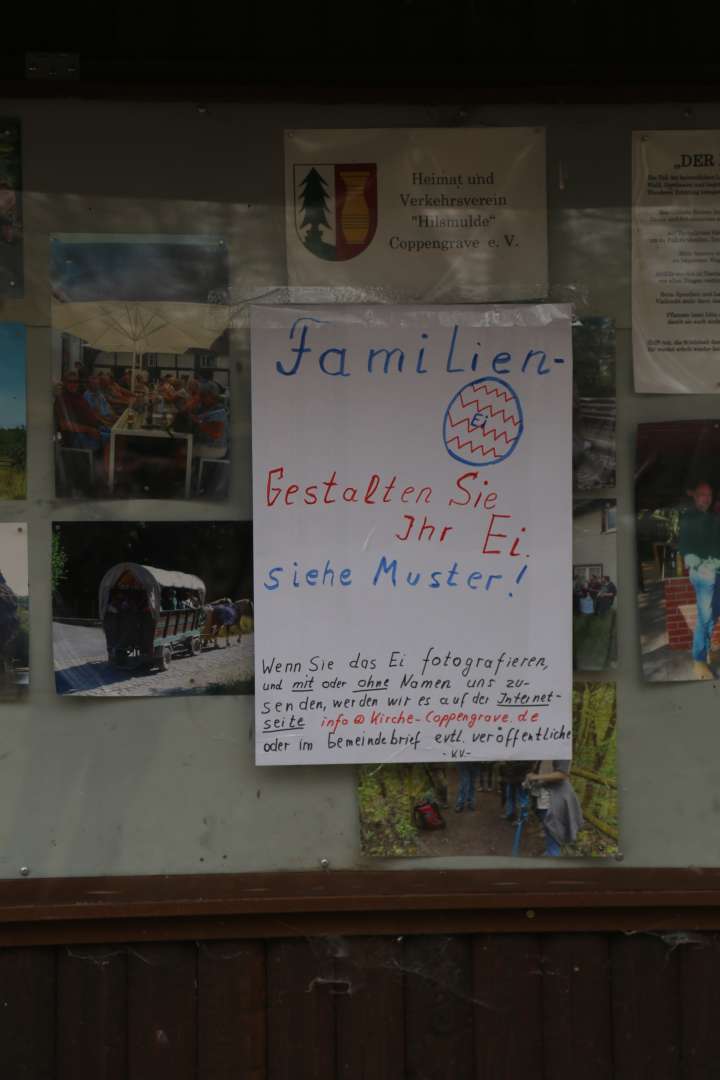 Heimat und
Verkehrsverein
"Hilsmulde"
Coppengrave e. V.
„DER
Familien-
Ei
Gestalten Sie
Ihr Ei.
siehe Muster!
Wenn Sie das Ei fotografieren,
und mit oder ohne Namen uns zu-
senden, werden wir es auf der Internet-
seite info@Kirche-Coppengrave.de
oder im Gemeindebrief evtl. veröffentliche
- KV -